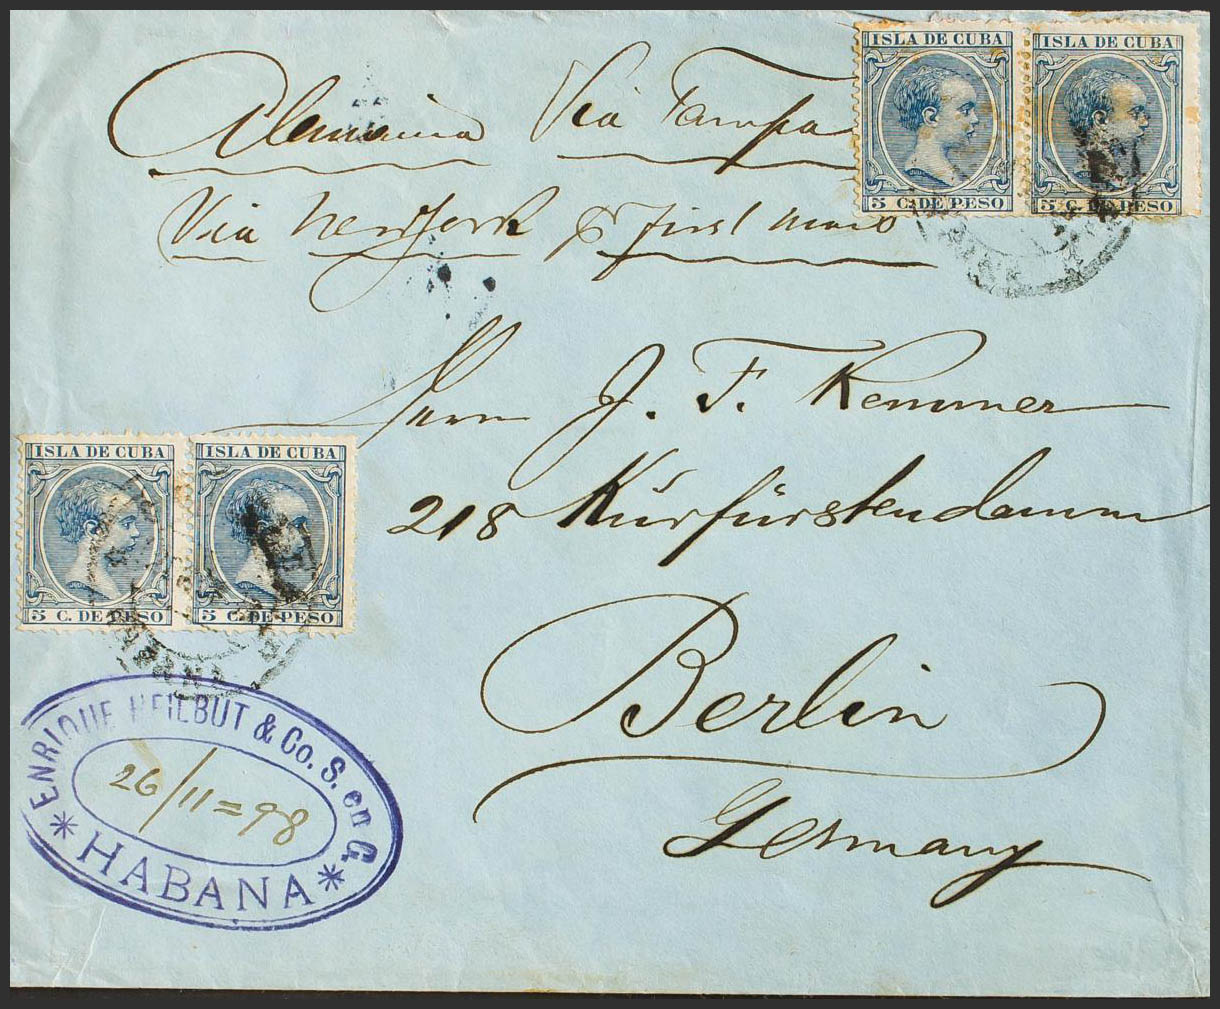 ISLA DE CUBA
5 C. DE PESO
ISLA DE CUBA
5 C. DE PESO
Alemania Via Tampa
Via New York pr first mail
Herrn J. F. Kemmer
218 Kúrfúrstendamm
Berlin
Germany
ISLA DE CUBA
5 C. DE PESO
ISLA DE CUBA
5 C. DE PESO
ENRIQUE HEILBUT & Co. S. en C.
26/11=98
* HABANA *